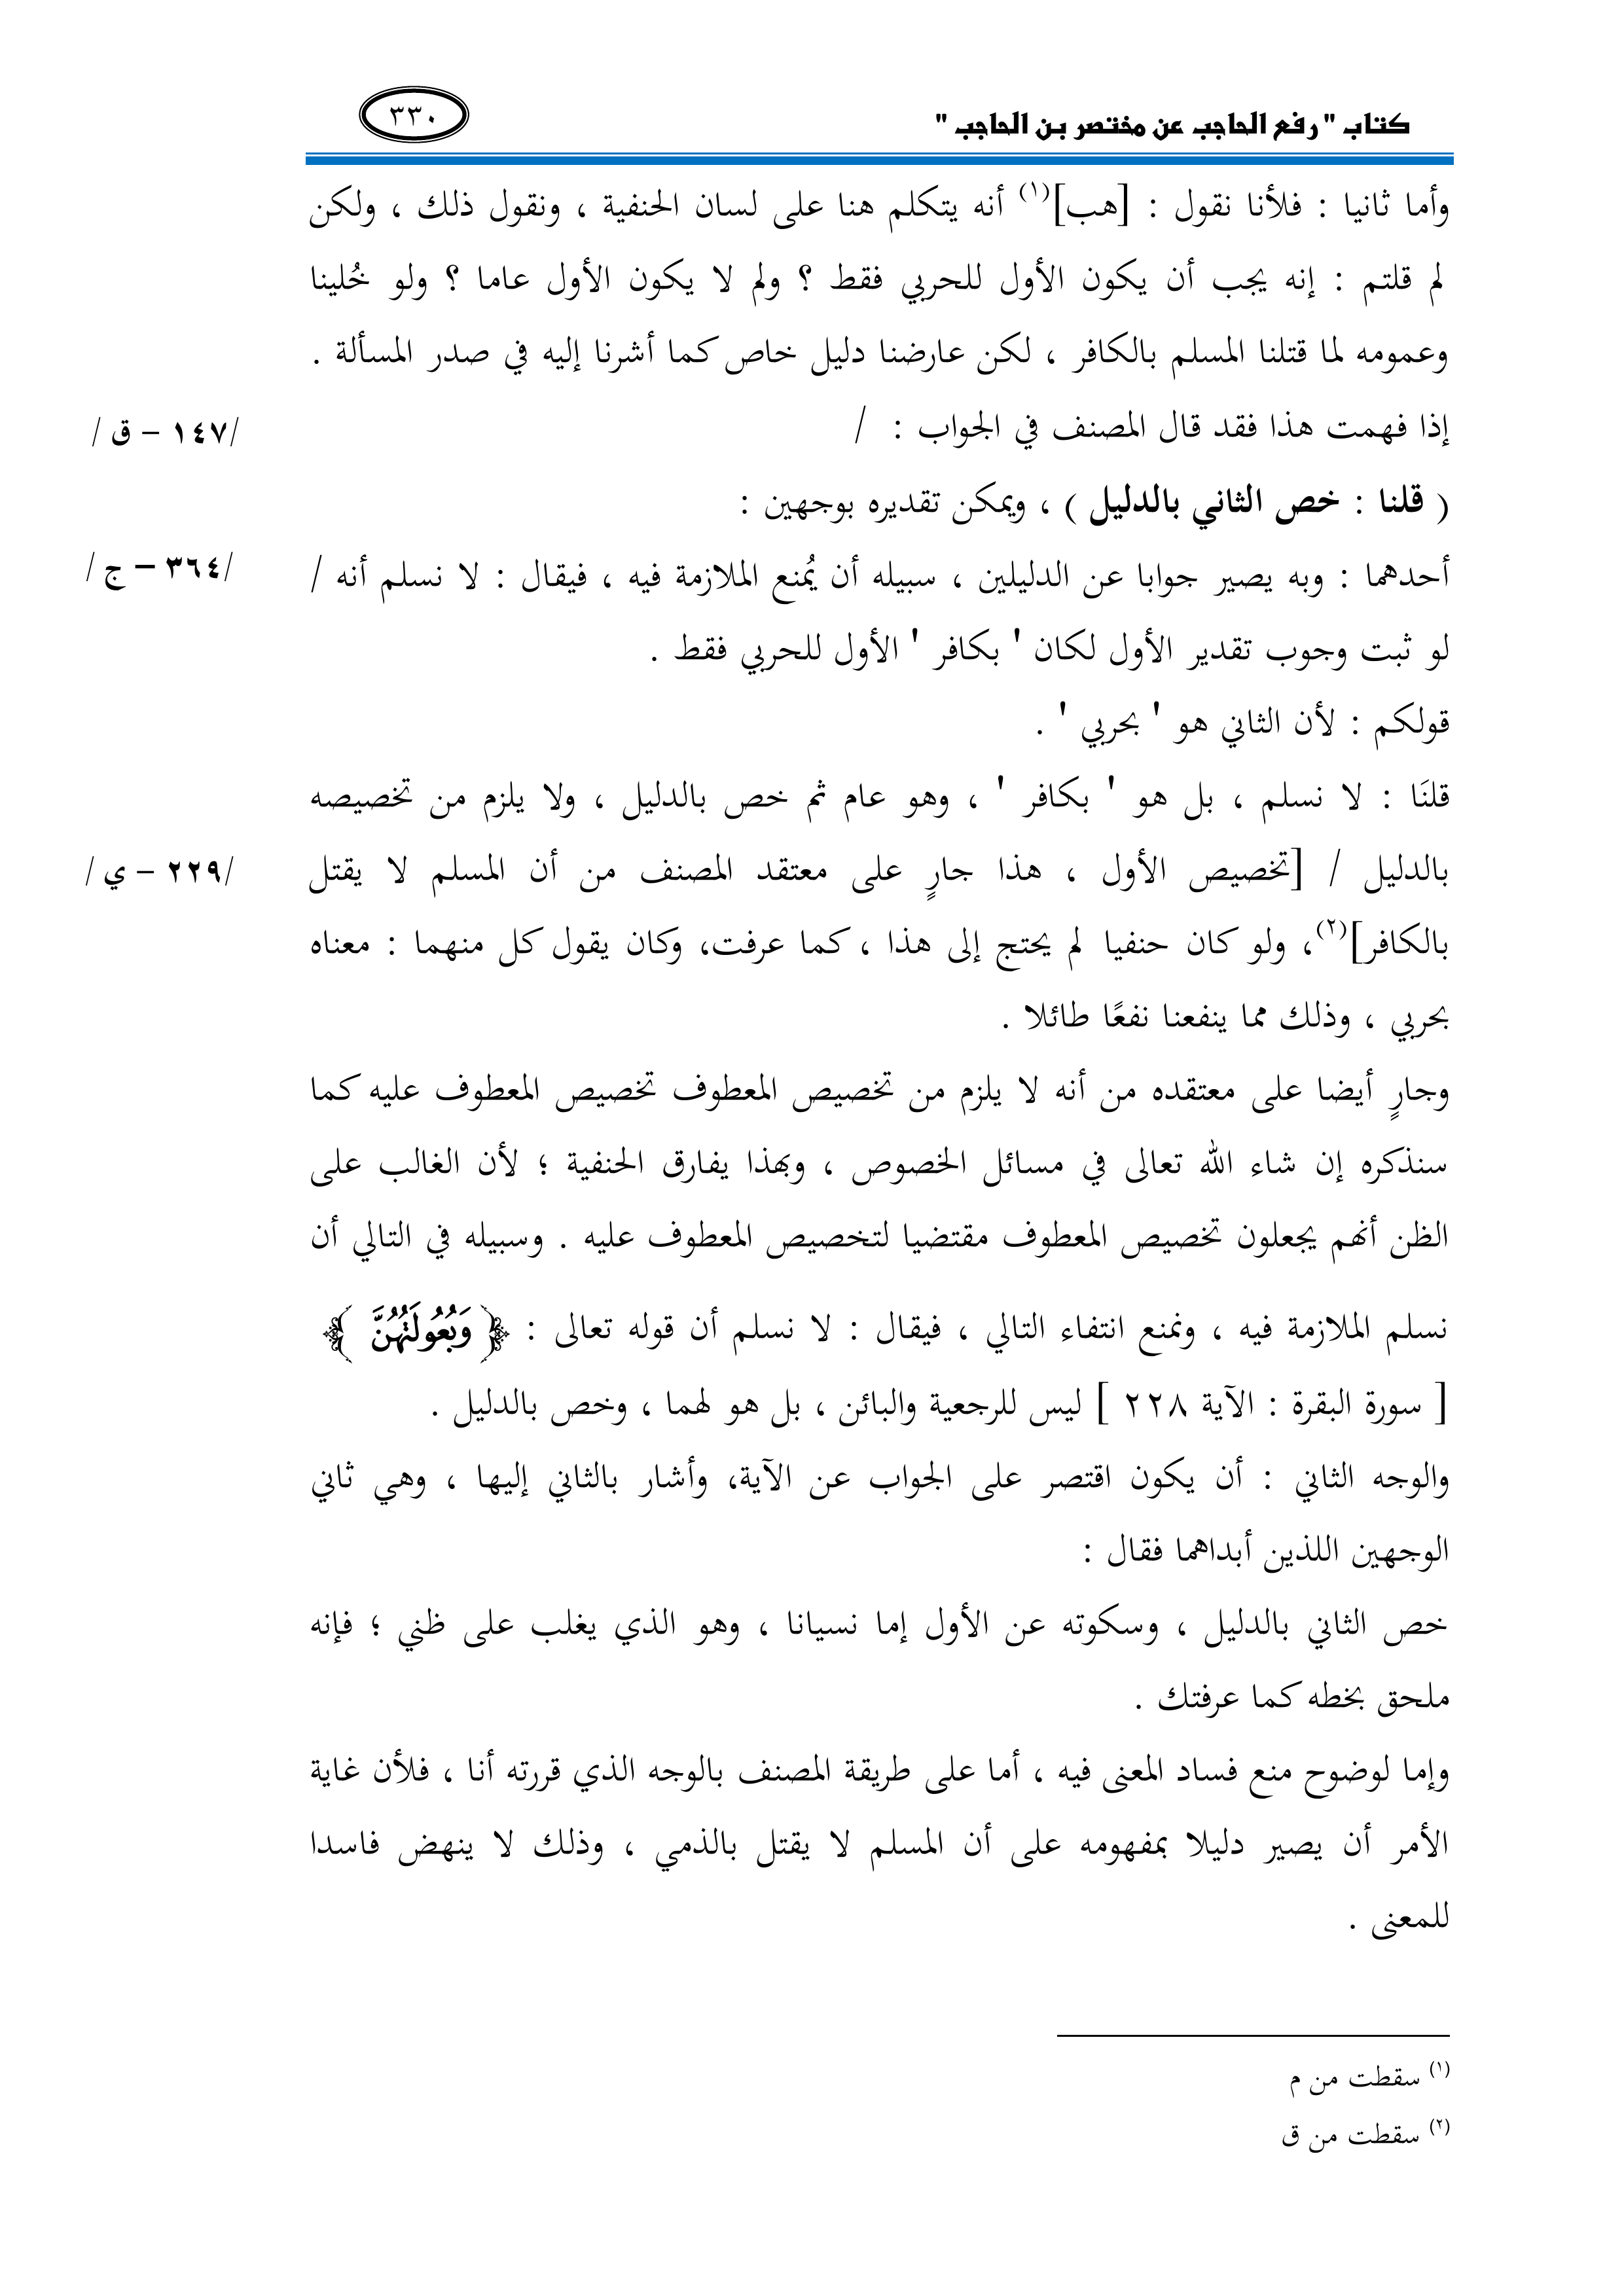 كتاب " رفع الحاجب عن مختصر بن الحاجب "
٣٣٠
وأما ثانيا : فلأنا نقول : [هب](١) أنه يتكلم هنا على لسان الحنفية ، ونقول ذلك ، ولكن
لم قلتم : إنه يجب أن يكون الأول للحربي فقط ؟ ولم لا يكون الأول عاما ؟ ولو خُلينا
وعمومه لما قتلنا المسلم بالكافر ، لكن عارضنا دليل خاص كما أشرنا إليه في صدر المسألة .
إذا فهمت هذا فقد قال المصنف في الجواب : /
/١٤٧ – ق /
( قلنا : خص الثاني بالدليل ) ، ويمكن تقديره بوجهين :
أحدهما : وبه يصير جوابا عن الدليلين ، سبيله أن يُمنع الملازمة فيه ، فيقال : لا نسلم أنه /
/٣٦٤ – ج /
لو ثبت وجوب تقدير الأول لكان ' بكافر ' الأول للحربي فقط .
قولكم : لأن الثاني هو ' بحربي ' .
قلنَا : لا نسلم ، بل هو ' بكافر ' ، وهو عام ثم خص بالدليل ، ولا يلزم من تخصيصه
بالدليل / [تخصيص الأول ، هذا جارٍ على معتقد المصنف من أن المسلم لا يقتل
/٢٢٩ – ي /
بالكافر](٢)، ولو كان حنفيا لم يحتج إلى هذا ، كما عرفت، وكان يقول كل منهما : معناه
بحربي ، وذلك مما ينفعنا نفعًا طائلا .
وجارٍ أيضا على معتقده من أنه لا يلزم من تخصيص المعطوف تخصيص المعطوف عليه كما
سنذكره إن شاء الله تعالى في مسائل الخصوص ، وبهذا يفارق الحنفية ؛ لأن الغالب على
الظن أنهم يجعلون تخصيص المعطوف مقتضيا لتخصيص المعطوف عليه . وسبيله في التالي أن
نسلم الملازمة فيه ، ونمنع انتفاء التالي ، فيقال : لا نسلم أن قوله تعالى : ﴿ وَبُعُولَتُهُنَّ ﴾
[ سورة البقرة : الآية ٢٢٨ ] ليس للرجعية والبائن ، بل هو لهما ، وخص بالدليل .
والوجه الثاني : أن يكون اقتصر على الجواب عن الآية، وأشار بالثاني إليها ، وهي ثاني
الوجهين اللذين أبداهما فقال :
خص الثاني بالدليل ، وسكوته عن الأول إما نسيانا ، وهو الذي يغلب على ظني ؛ فإنه
ملحق بخطه كما عرفتك .
وإما لوضوح منع فساد المعنى فيه ، أما على طريقة المصنف بالوجه الذي قررته أنا ، فلأن غاية
الأمر أن يصير دليلا بمفهومه على أن المسلم لا يقتل بالذمي ، وذلك لا ينهض فاسدا
للمعنى .
(١) سقطت من م
(٢) سقطت من ق